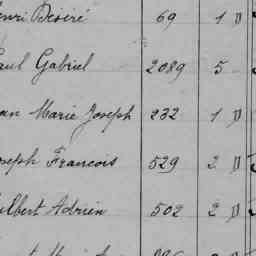 enri Désiré 69 1 D
Paul Gabriel 2089 5
an Marie Joseph 232 1 D
oseph Francois 529 2 D
ilbert Adrien 502 2 D